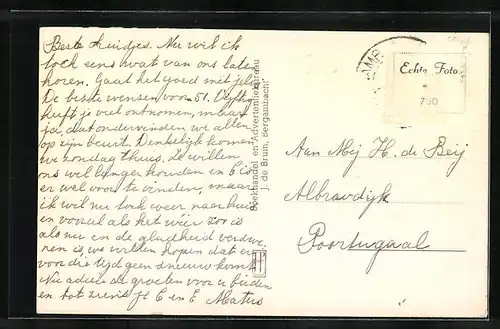 Beste luidjes. Nu wil ik
toch eens wat van ons laten
horen. Gaat het goed met jelui
De beste wensen voor 51. Vijftig
heeft je veel ontnomen, maar
ja, dat ondervinden we allen
op zijn beurt. Denkelijk komen
we zondag thuis. Ze willen
ons wel langer houden en C is
er wel voor te vinden, maar
ik wil nu toch weer naar huis
en vooral als het weer zo is
als nu en de gladheid verdwe-
nen is, we willen hopen dat er
voor die tijd geen sneeuw komt.
Nu adieu de groeten voor u beiden
en tot ziens C en E Maters
Boekhandel en Advertentiebureau
J. de Bruin, Bergambacht
Echte Foto
750
Aan Mej H. de Beij
Albravdijk
Poortugaal